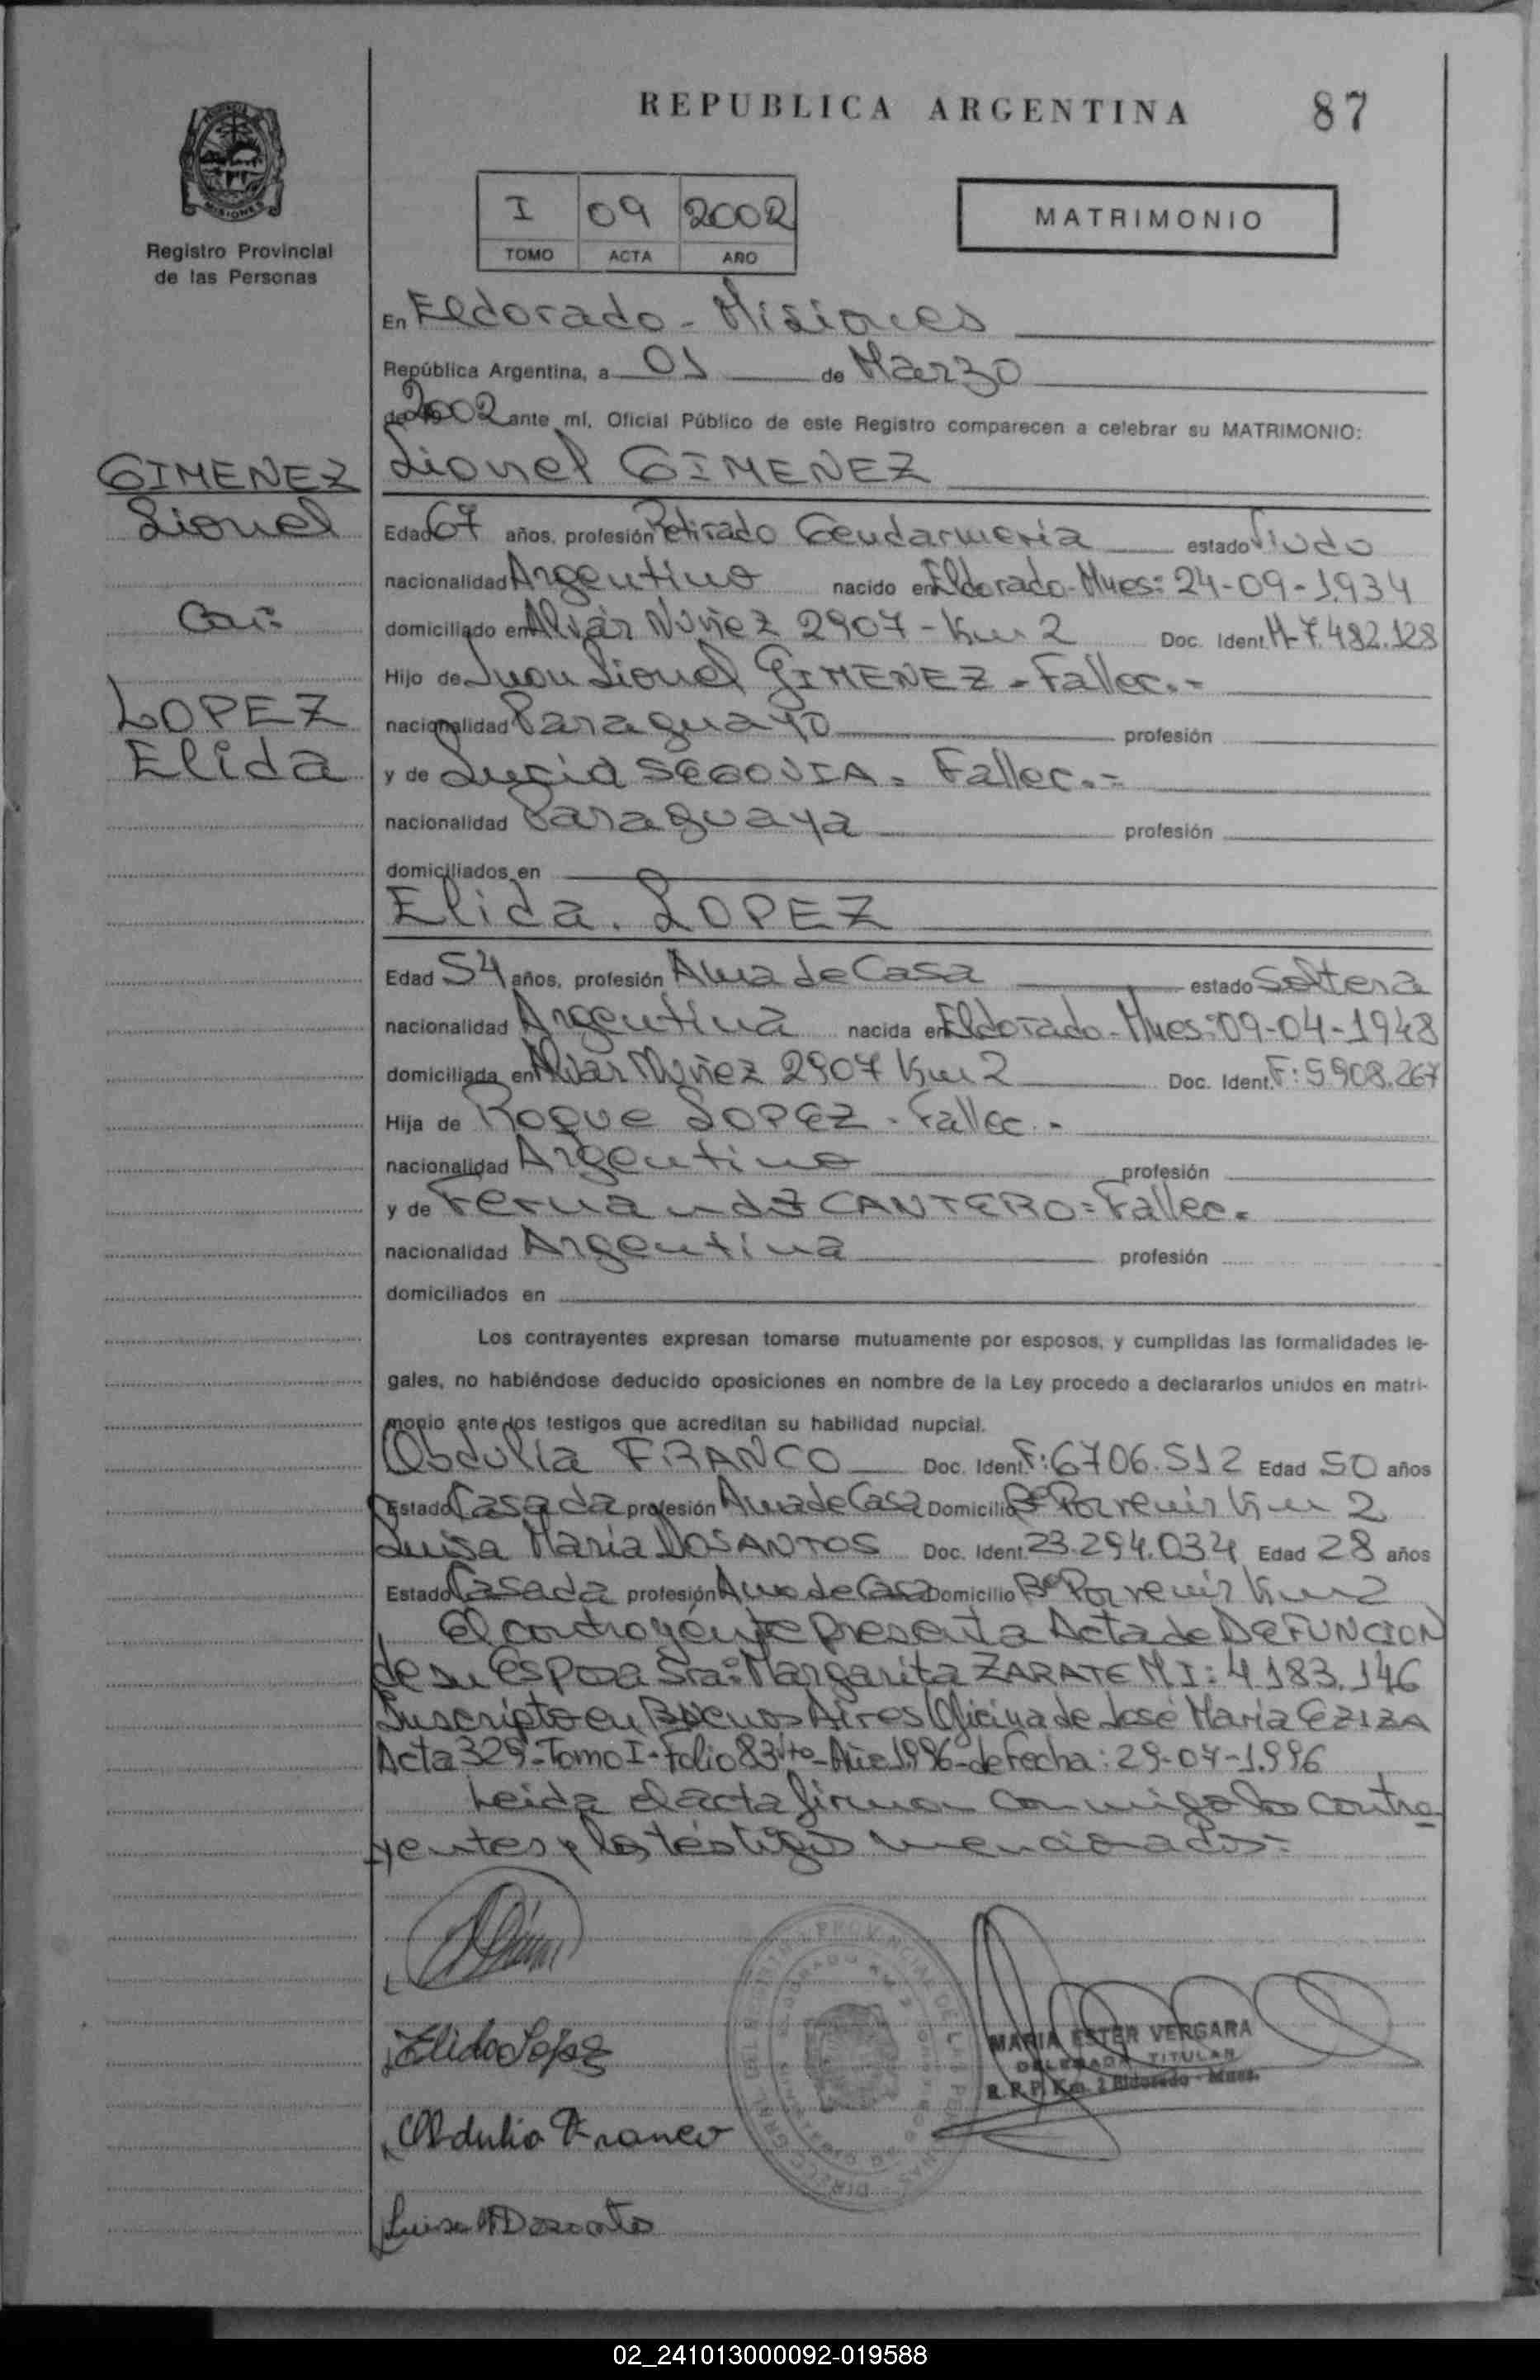 REPUBLICA ARGENTINA
87
MISIONES
Registro Provincial
de las Personas
I 09 2002
TOMO ACTA AÑO
MATRIMONIO
En Eldorado - Misiones
República Argentina, a 01 de Marzo
de 2002 ante mí, Oficial Público de este Registro comparecen a celebrar su MATRIMONIO:
GIMENEZ
Lionel
Con:
LOPEZ
Elida
Lionel GIMENEZ
Edad 67 años, profesión Retirado Gendarmeria estado Viudo
nacionalidad Argentino nacido en Eldorado-Mnes: 24-09-1.934
domiciliado en Alvar Nuñez 2907 - Km 2 Doc. Ident. M-7.482.128
Hijo de Juan Lionel GIMENEZ - Fallec.-
nacionalidad Paraguayo profesión
y de Lucia SEGOVIA - Fallec.-
nacionalidad Paraguaya profesión
domiciliados en
Elida. LOPEZ
Edad 54 años, profesión Ama de Casa estado Soltera
nacionalidad Argentina nacida en Eldorado-Mnes: 09-04-1948
domiciliada en Alvar Nuñez 2907 Km 2 Doc. Ident. F: 5908.267
Hija de Roque LOPEZ - Fallec.-
nacionalidad Argentino profesión
y de Fernanda CANTERO = Fallec.
nacionalidad Argentina profesión
domiciliados en
Los contrayentes expresan tomarse mutuamente por esposos, y cumplidas las formalidades le-
gales, no habiéndose deducido oposiciones en nombre de la Ley procedo a declararlos unidos en matri-
monio ante los testigos que acreditan su habilidad nupcial.
Obdulia FRANCO Doc. Ident. F: 6706.512 Edad 50 años
Estado Casada profesión Ama de Casa Domicilio Bº Porvenir Km 2
Luisa Maria DOSANTOS Doc. Ident. 23.294.034 Edad 28 años
Estado Casada profesión Ama de Casa Domicilio Bº Porvenir Km 2
El contrayente presenta Acta de DEFUNCION
de su esposa Sra: Margarita ZARATE M I: 4.183.146
Inscripto en Buenos Aires Oficina de José Maria EZIZA
Acta 329-Tomo I-Folio 83 vto-Año 1.996-de fecha: 29-07-1.996
Leida el acta firman conmigo los contra-
yentes y los testigos mencionados=
Elida Lopez
Obdulia Franco
Luisa M Dosantos
MARIA ESTER VERGARA
DELEGADA TITULAR
R. P. P. Km. 2 Eldorado - Mnes.
02_241013000092-019588